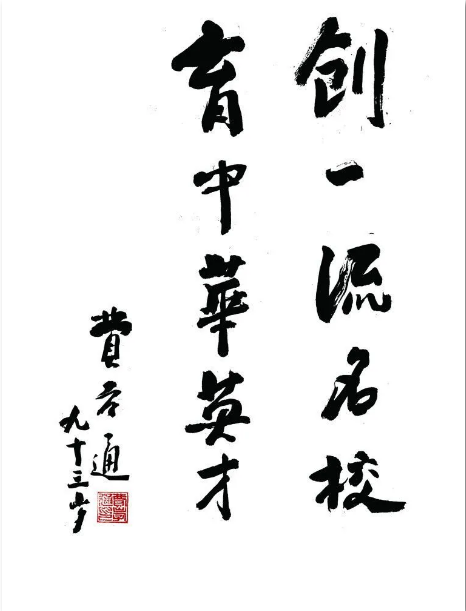 创一流名校
育中華英才
費孝通
九十三岁